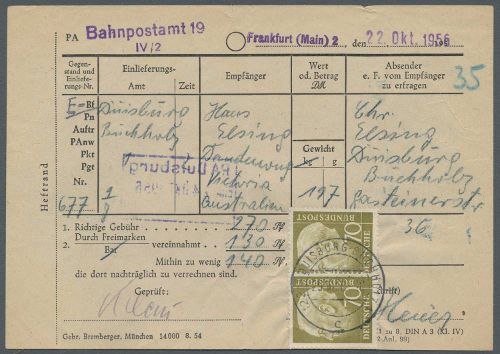 PA Bahnpostamt 19
IV/2
Frankfurt (Main) 2, den 22. Okt. 1956
Gegenstand und Einlieferungs-Nr.
Einlieferungs-
Amt Zeit
Empfänger
Wert od. Betrag DM
Absender e. F. vom Empfänger zu erfragen
35
E=Bf
Pn
Auftr
PAnw
Pkt
Pgt
Nr.
677
Duisburg
Buchholz
Hans
Elsing
Victoria
Australien
Gewicht
kg g
197
Chr.
Elsing
Duisburg
Buchholz
36
Heftrand
1. Richtige Gebühr 270 Pf
Durch Freimarken
2. Bar vereinnahmt 130 Pf
Mithin zu wenig 140 Pf
die dort nachträglich zu verrechnen sind.
Geprüft:
DEUTSCHE BUNDESPOST 70
DEUTSCHE BUNDESPOST 70
DUISBURG
Gebr. Bremberger, München 14 000 8. 54
zu 8, DIN A 3 (Kl. IV)